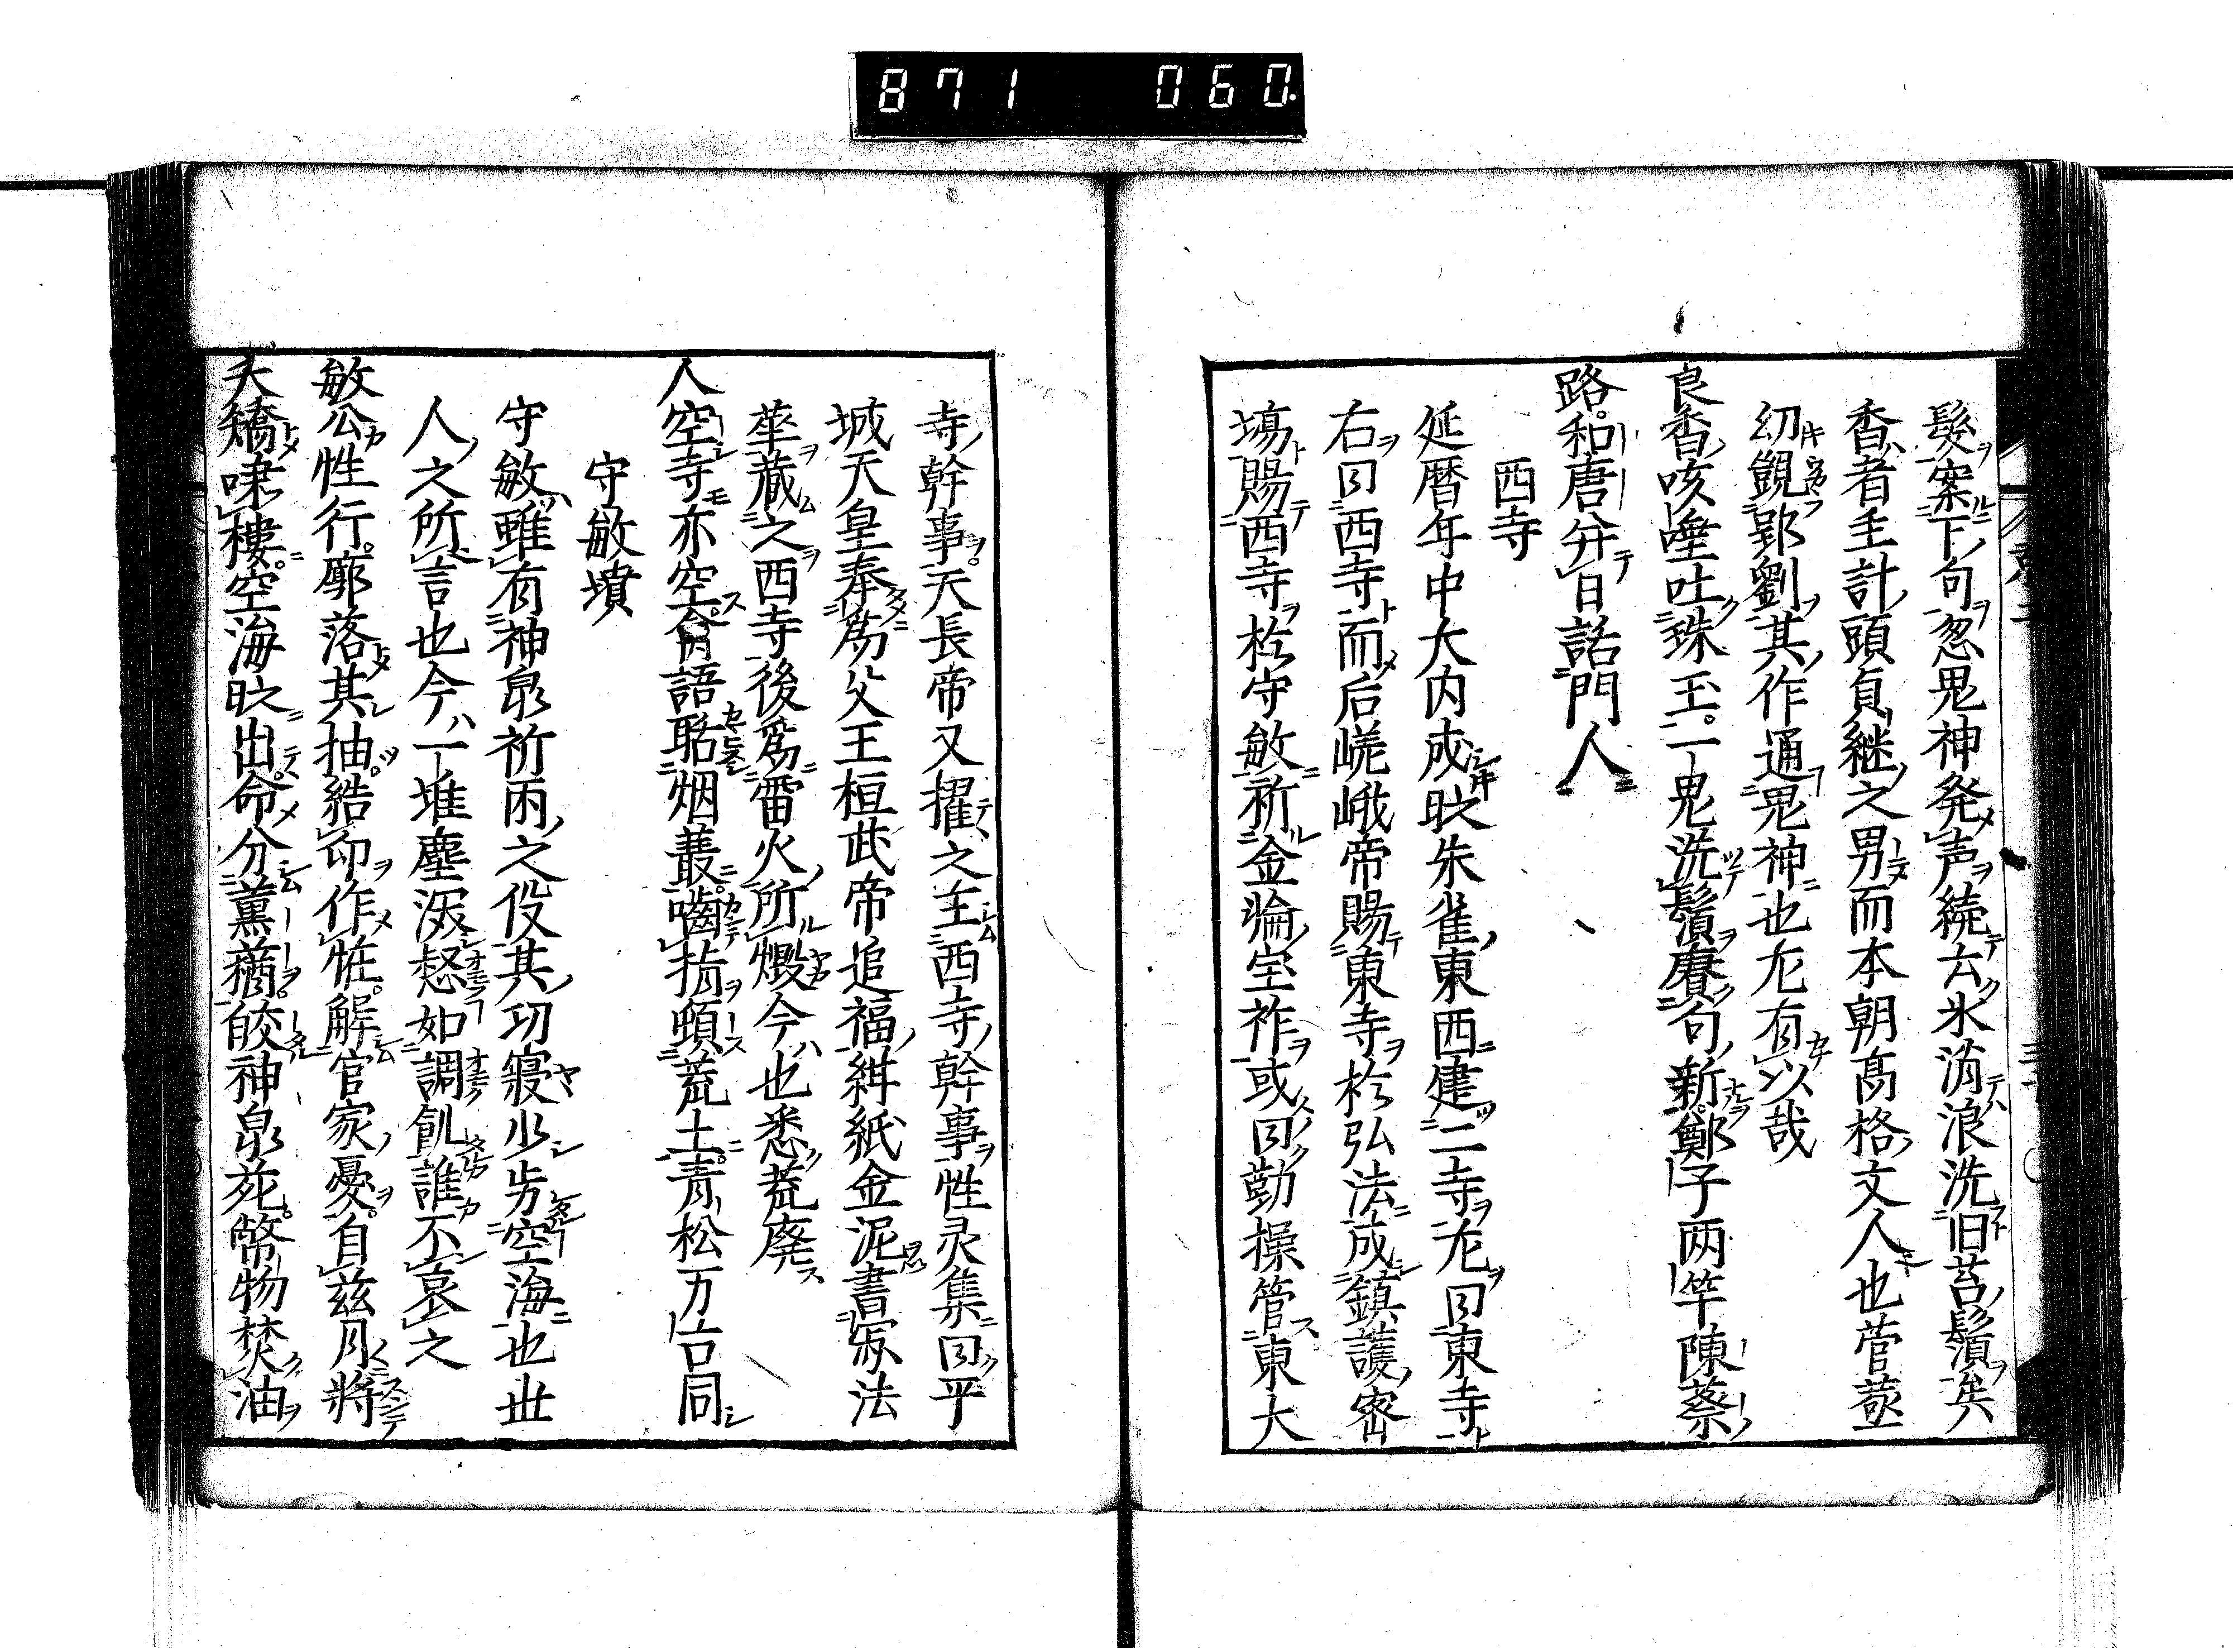 871 060
髮案下句忽鬼神発声続云氷消浪洗旧苔鬚矣
香者主計頭貞継之男而本朝高格文人也菅丞
幼覩郢劉其作通鬼神也尤有以哉
良香咳唾吐珠玉一鬼洗鬚賡句新鄭子両竿陳蔡
路和唐分日詣門人
西寺
延暦年中大内成時朱雀東西建二寺左曰東寺
右曰西寺而后嵯峨帝賜東寺於弘法成鎮護密
場賜西寺於守敏祈金輪宝祚或曰勤操管東大
寺幹事天長帝又擢之主西寺幹事性灵集曰平
城天皇奉為父王桓武帝追福紺紙金泥書寫法
華蔵之西寺後為雷火所燬今也悉荒廃
人空寺亦空谷語聒烟叢嚙指頭荒土青松万古同
守敏墳
守敏雖有神泉祈雨之役其功寝少劣空海也世
人之所言也今一堆塵溷惄如調飢誰不哀之
敏公性行廓落其抽結印作怪解官家憂自玆月將
夭矯嘯樓空海時出命分薫蕕皎神泉苑幣物焚油